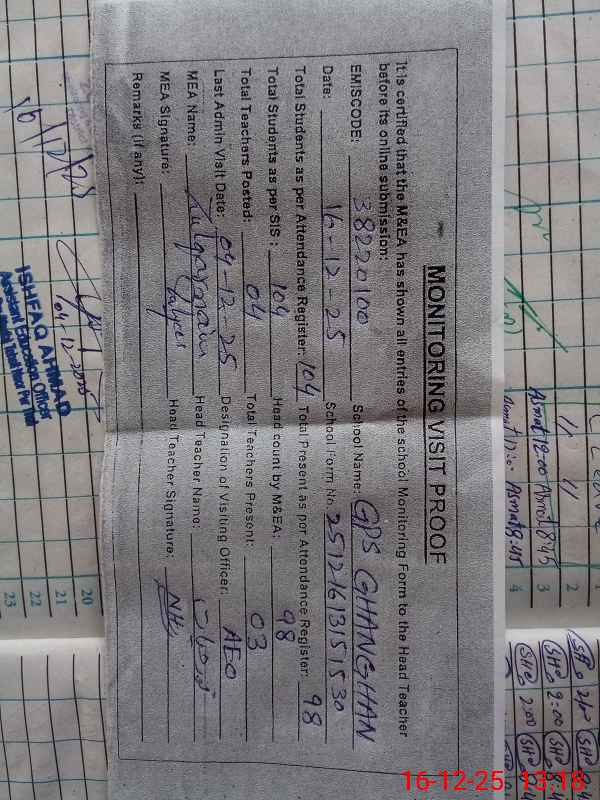 MONITORING VISIT PROOF
It is certified that the M&EA has shown all entries of the school Monitoring Form to the Head Teacher
before its online submission:
EMISCODE: 38220100 School Name: GPS GHANGHAN
Date: 16-12-25 School Form No. 25121613151530
Total Students as per Attendance Register: 104 Total Present as per Attendance Register: 98
Total Students as per SIS: 104 Head count by M&EA: 98
Total Teachers Posted: 04 Total Teachers Present: 03
Last Admin Visit Date: 04-12-25 Designation of Visiting Officer: AEO
MEA Name: Head Teacher Name:
MEA Signature: Head Teacher Signature:
Remarks (if any):
16/12/25
04-12-2025
ISHFAQ AHMAD
Assistant Education Officer
1/ 1/ 2
Asmat 12:00 Asmat 8:45 3
Asmat 8:45 4
2:00
2:00
20
21
22
23
16-12-25 13:18